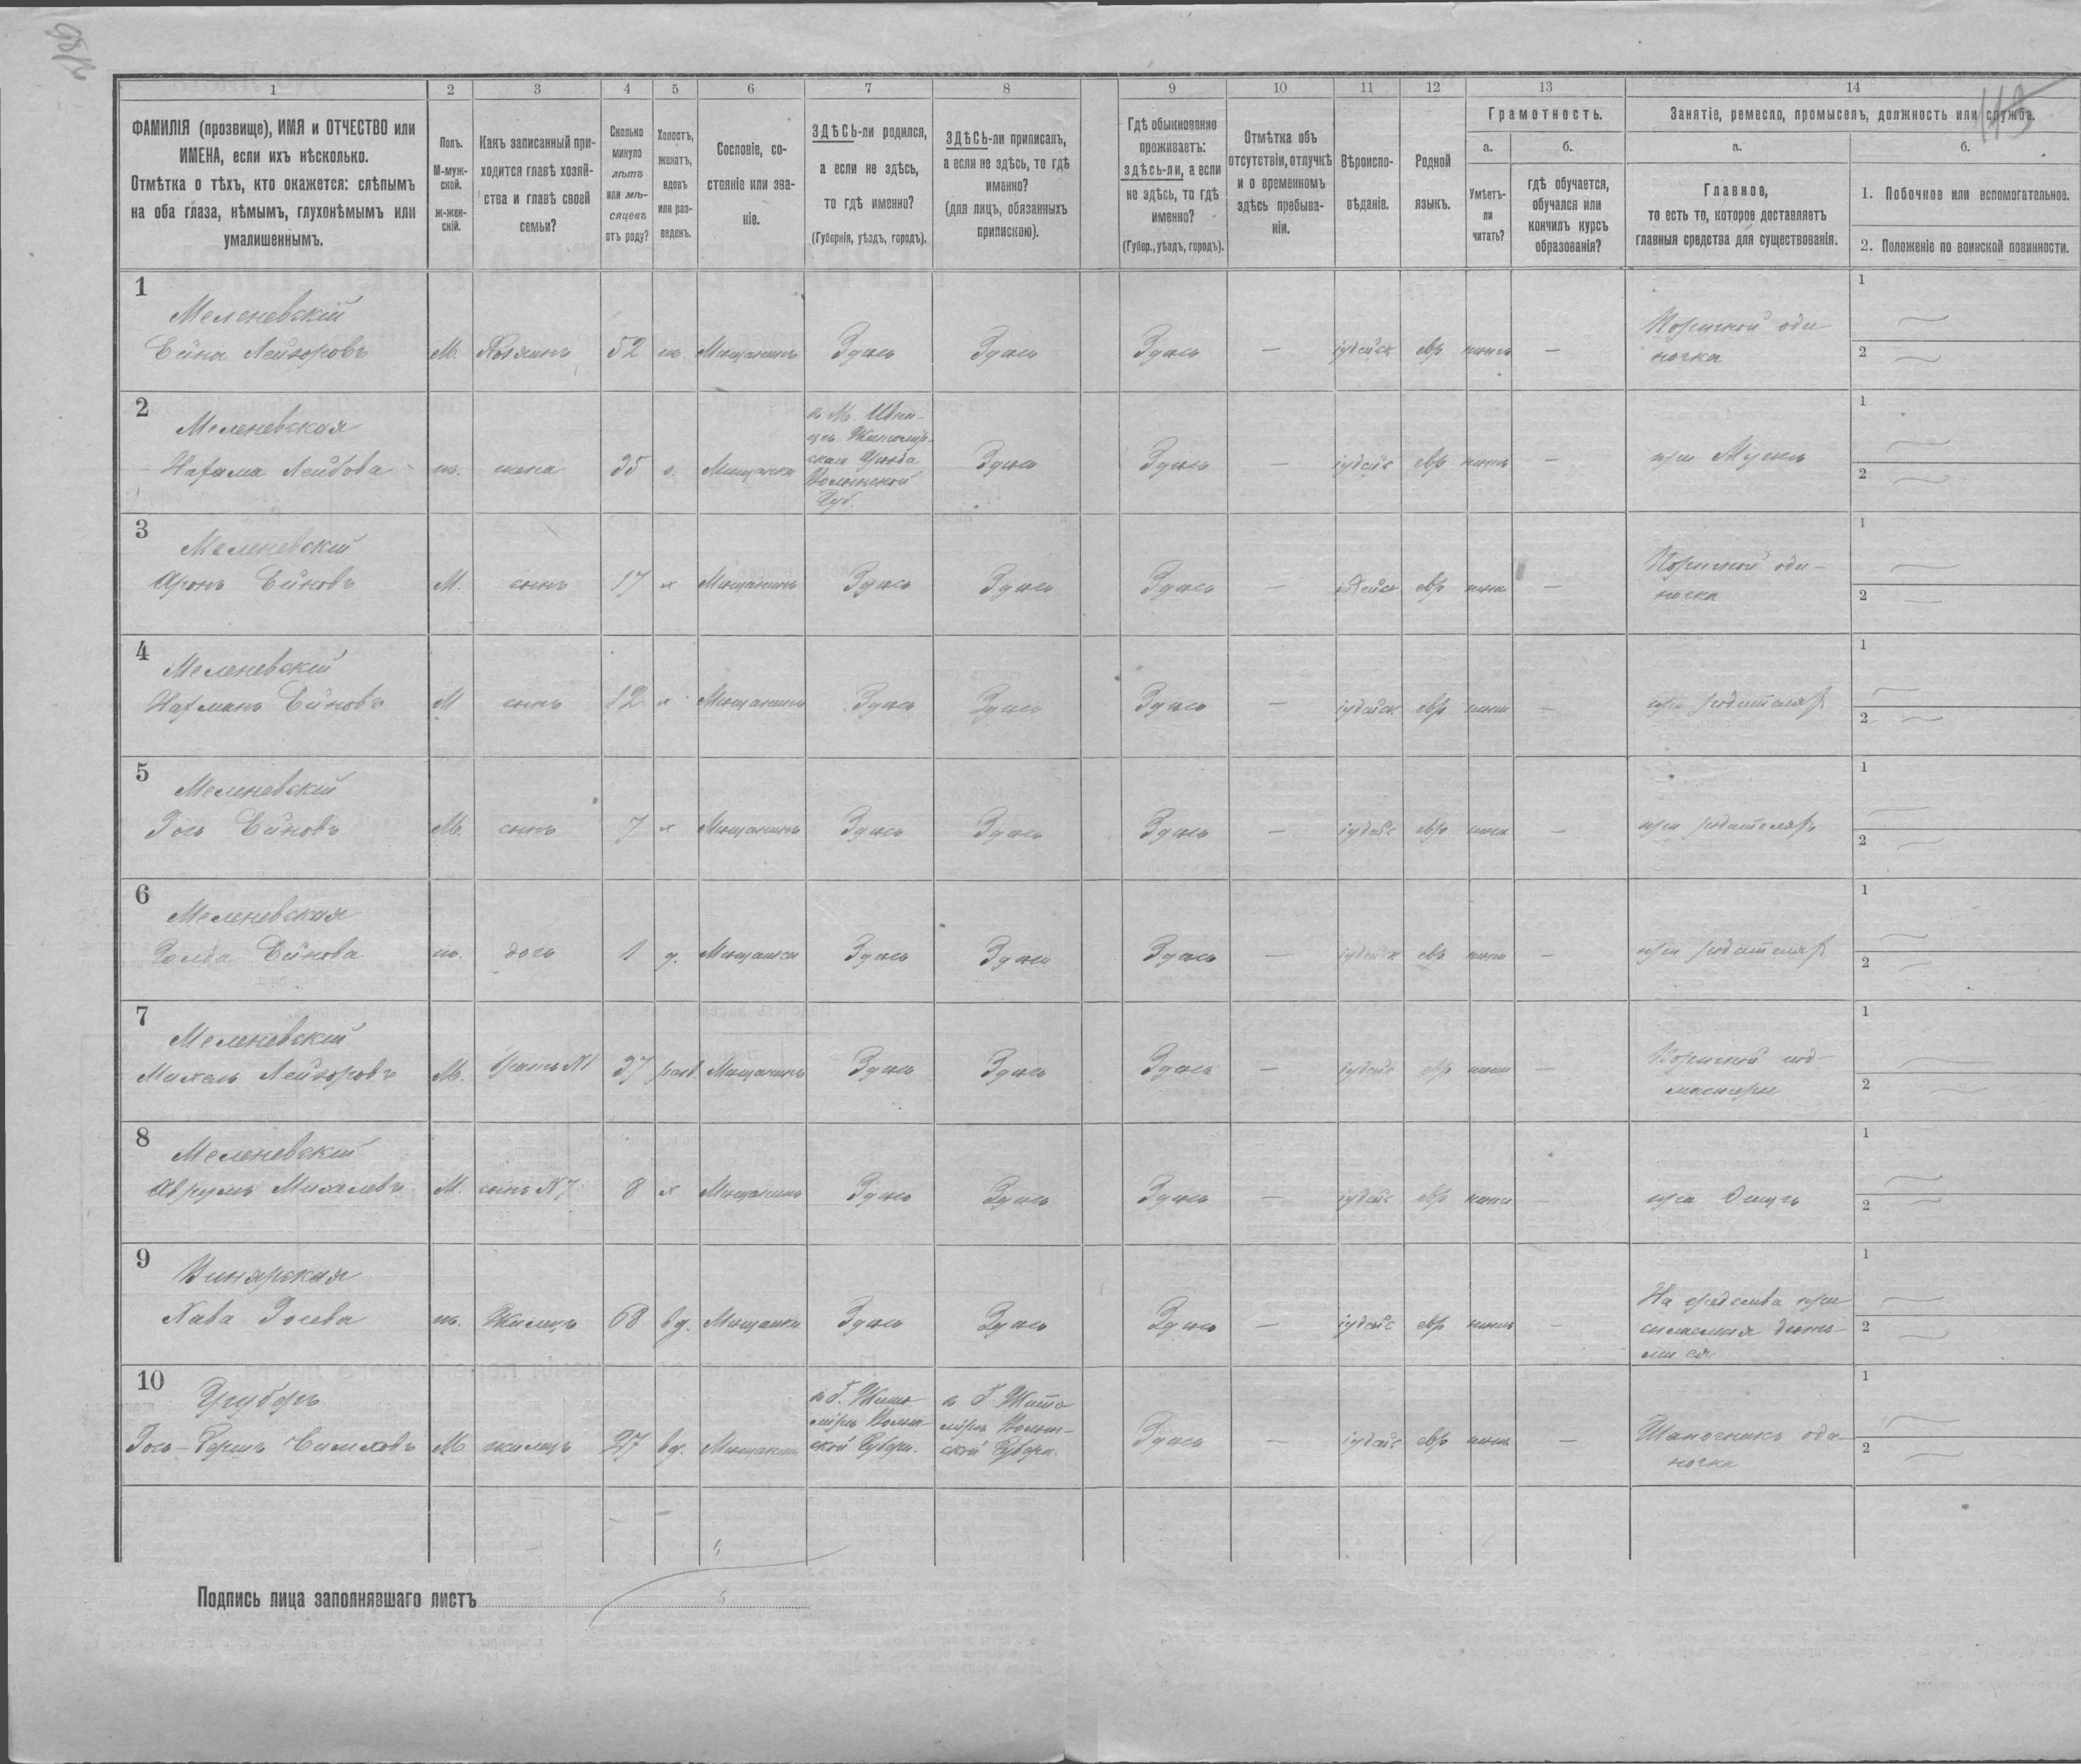 1
2
3
4
5
6
7
8
9
10
11
12
13
14
ФАМИЛІЯ (прозвище), ИМЯ и ОТЧЕСТВО или
ИМЕНА, если ихъ нѣсколько.
Отмѣтка о тѣхъ, кто окажется: слѣпымъ
на оба глаза, нѣмымъ, глухонѣмымъ или
умалишеннымъ.
Полъ.
М-муж-
ской.
ж-жен-
скій.
Какъ записанный при-
ходится главѣ хозяй-
ства и главѣ своей
семьи?
Сколько
минуло
лѣтъ
или мѣ-
сяцевъ
отъ роду?
Холостъ,
женатъ,
вдовъ
или раз-
веденъ.
Сословіе, со-
стояніе или зва-
ніе.
ЗДѢСЬ-ли родился,
а если не здѣсь,
то гдѣ именно?
(Губернія, уѣздъ, городъ).
ЗДѢСЬ-ли приписанъ,
а если не здѣсь, то гдѣ
именно?
(для лицъ, обязанныхъ
припискою).
Гдѣ обыкновенно
проживаетъ:
здѣсь-ли, а если
не здѣсь, то гдѣ
именно?
(Губер., уѣздъ, городъ).
Отмѣтка объ
отсутствіи, отлучкѣ
и о временномъ
здѣсь пребыва-
ніи.
Вѣроиспо-
вѣданіе.
Родной
языкъ.
Грамотность.
а.
Умѣетъ-
ли
читать?
б.
гдѣ обучается,
обучался или
кончилъ курсъ
образованія?
Занятіе, ремесло, промыселъ, должность или служба.
а.
Главное,
то есть то, которое доставляетъ
главныя средства для существованія.
б.
1. Побочное или вспомогательное.
2. Положеніе по воинской повинности.
1
Меленевскій
Ейна Лейзоровъ
М. Хозяинъ 52 ж. Мещанинъ Здѣсь Здѣсь Здѣсь — іудейск евр —
1
2
2
Меленевская
Нахама Лейбова
ж. жена 35 з. Мещанка
Волынской
Губ.
Здѣсь Здѣсь — іудейс евр — при Мужѣ
1
2
3
Меленевскій
Аронъ Ейновъ
М. сынъ 17 х Мещанинъ Здѣсь Здѣсь Здѣсь — евр —
1
2
4
Меленевскій
Нахманъ Ейновъ
М сынъ 12 х Мещанинъ Здѣсь Здѣсь Здѣсь — іудейск евр — при родителях
1
2
5
Меленевскій
Іось Ейновъ
М. сынъ 7 х Мещанинъ Здѣсь Здѣсь Здѣсь — іудейс евр — при родителяхъ
1
2
6
Меленевская
Голда Ейнова
ж. дочь 1 д. Мещанка Здѣсь Здѣсь Здѣсь — іудейск евр — при родителях
1
2
7
Меленевскій
Михель Лейзоровъ
М. братъ №1 37 разв Мещанинъ Здѣсь Здѣсь Здѣсь — іудейс евр —
1
2
8
Меленевскій
Аврумъ Михелевъ
М. сынъ №7 8 х Мещанинъ Здѣсь Здѣсь Здѣсь — іудейс евр — при Отцѣ
1
2
9
Винярская
Хава Іосева
ж. Жилецъ 68 вд. Мещанка Здѣсь Здѣсь Здѣсь — іудейс евр —
На средства при
сылаемыя дѣть-
ми ея
1
2
10
Іось-Гершъ
М жилецъ 27 вд. Мещанин
въ Г. Жито
мірѣ Волын-
ской Губерн.
въ Г. Жито
мірѣ Волын-
ской Губерн.
Здѣсь — іудейс евр —
Шапочникъ оди-
ночка
1
2
Подпись лица заполнявшаго листъ